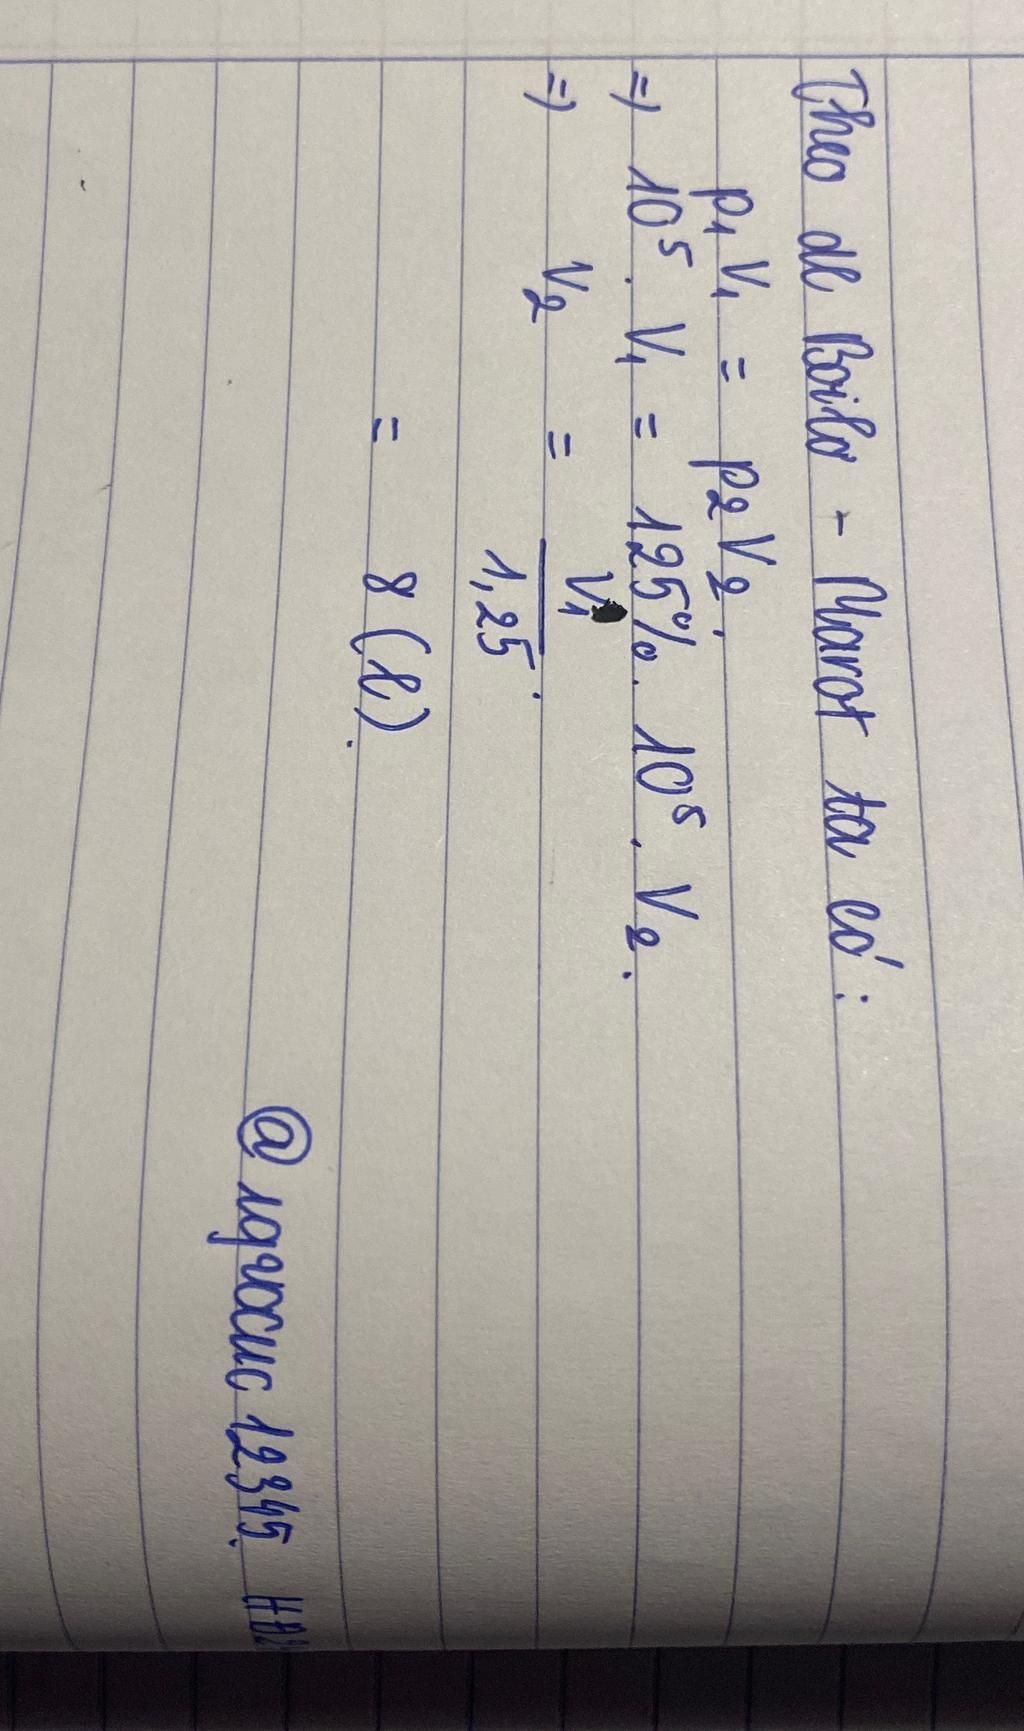 Theo đl Boilơ - Mariot ta có:
p₁V₁ = p₂V₂.
=> 10⁵ . V₁ = 125%. 10⁵ . V₂.
=> V₂ = V₁ / 1,25.
= 8 (l).
12345.